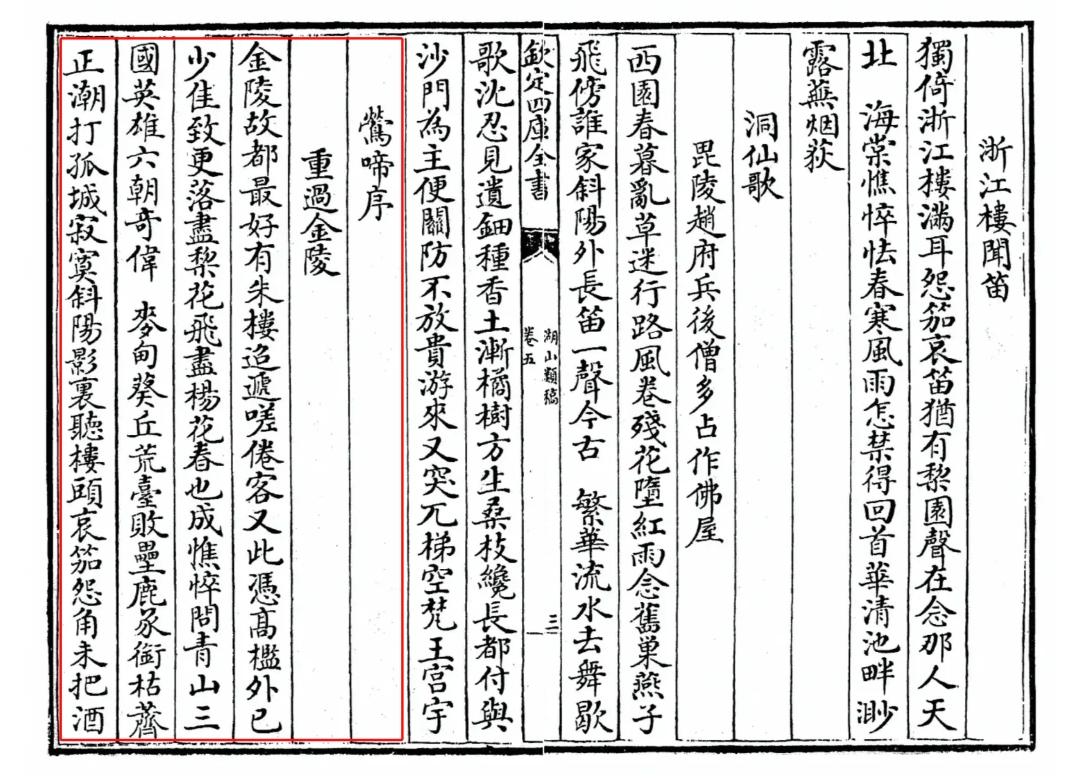 浙江樓聞笛
獨倚浙江樓滿耳怨笳哀笛猶有棃園聲在念那人天
北　海棠憔悴怯春寒風雨怎禁得回首華清池畔渺
露蕪烟荻
洞仙歌
毘陵趙府兵後僧多占作佛屋
西園春暮亂草迷行路風卷殘花墮紅雨念舊巢燕子
飛傍誰家斜陽外長笛一聲今古　繁華流水去舞歇
欽定四庫全書
湖山類稿
卷五
三
歌沈忍見遺鈿種香土漸橘樹方生桑枝纔長都付與
沙門為主便關防不放貴游來又突兀梯空梵王宮宇
鶯啼序
重過金陵
金陵故都最好有朱樓迢遞嗟倦客又此憑高檻外已
少佳致更落盡棃花飛盡楊花春也成憔悴問青山三
國英雄六朝奇偉　麥甸葵丘荒臺敗壘鹿豕銜枯薺
正潮打孤城寂寞斜陽影裏聽樓頭哀笳怨角未把酒